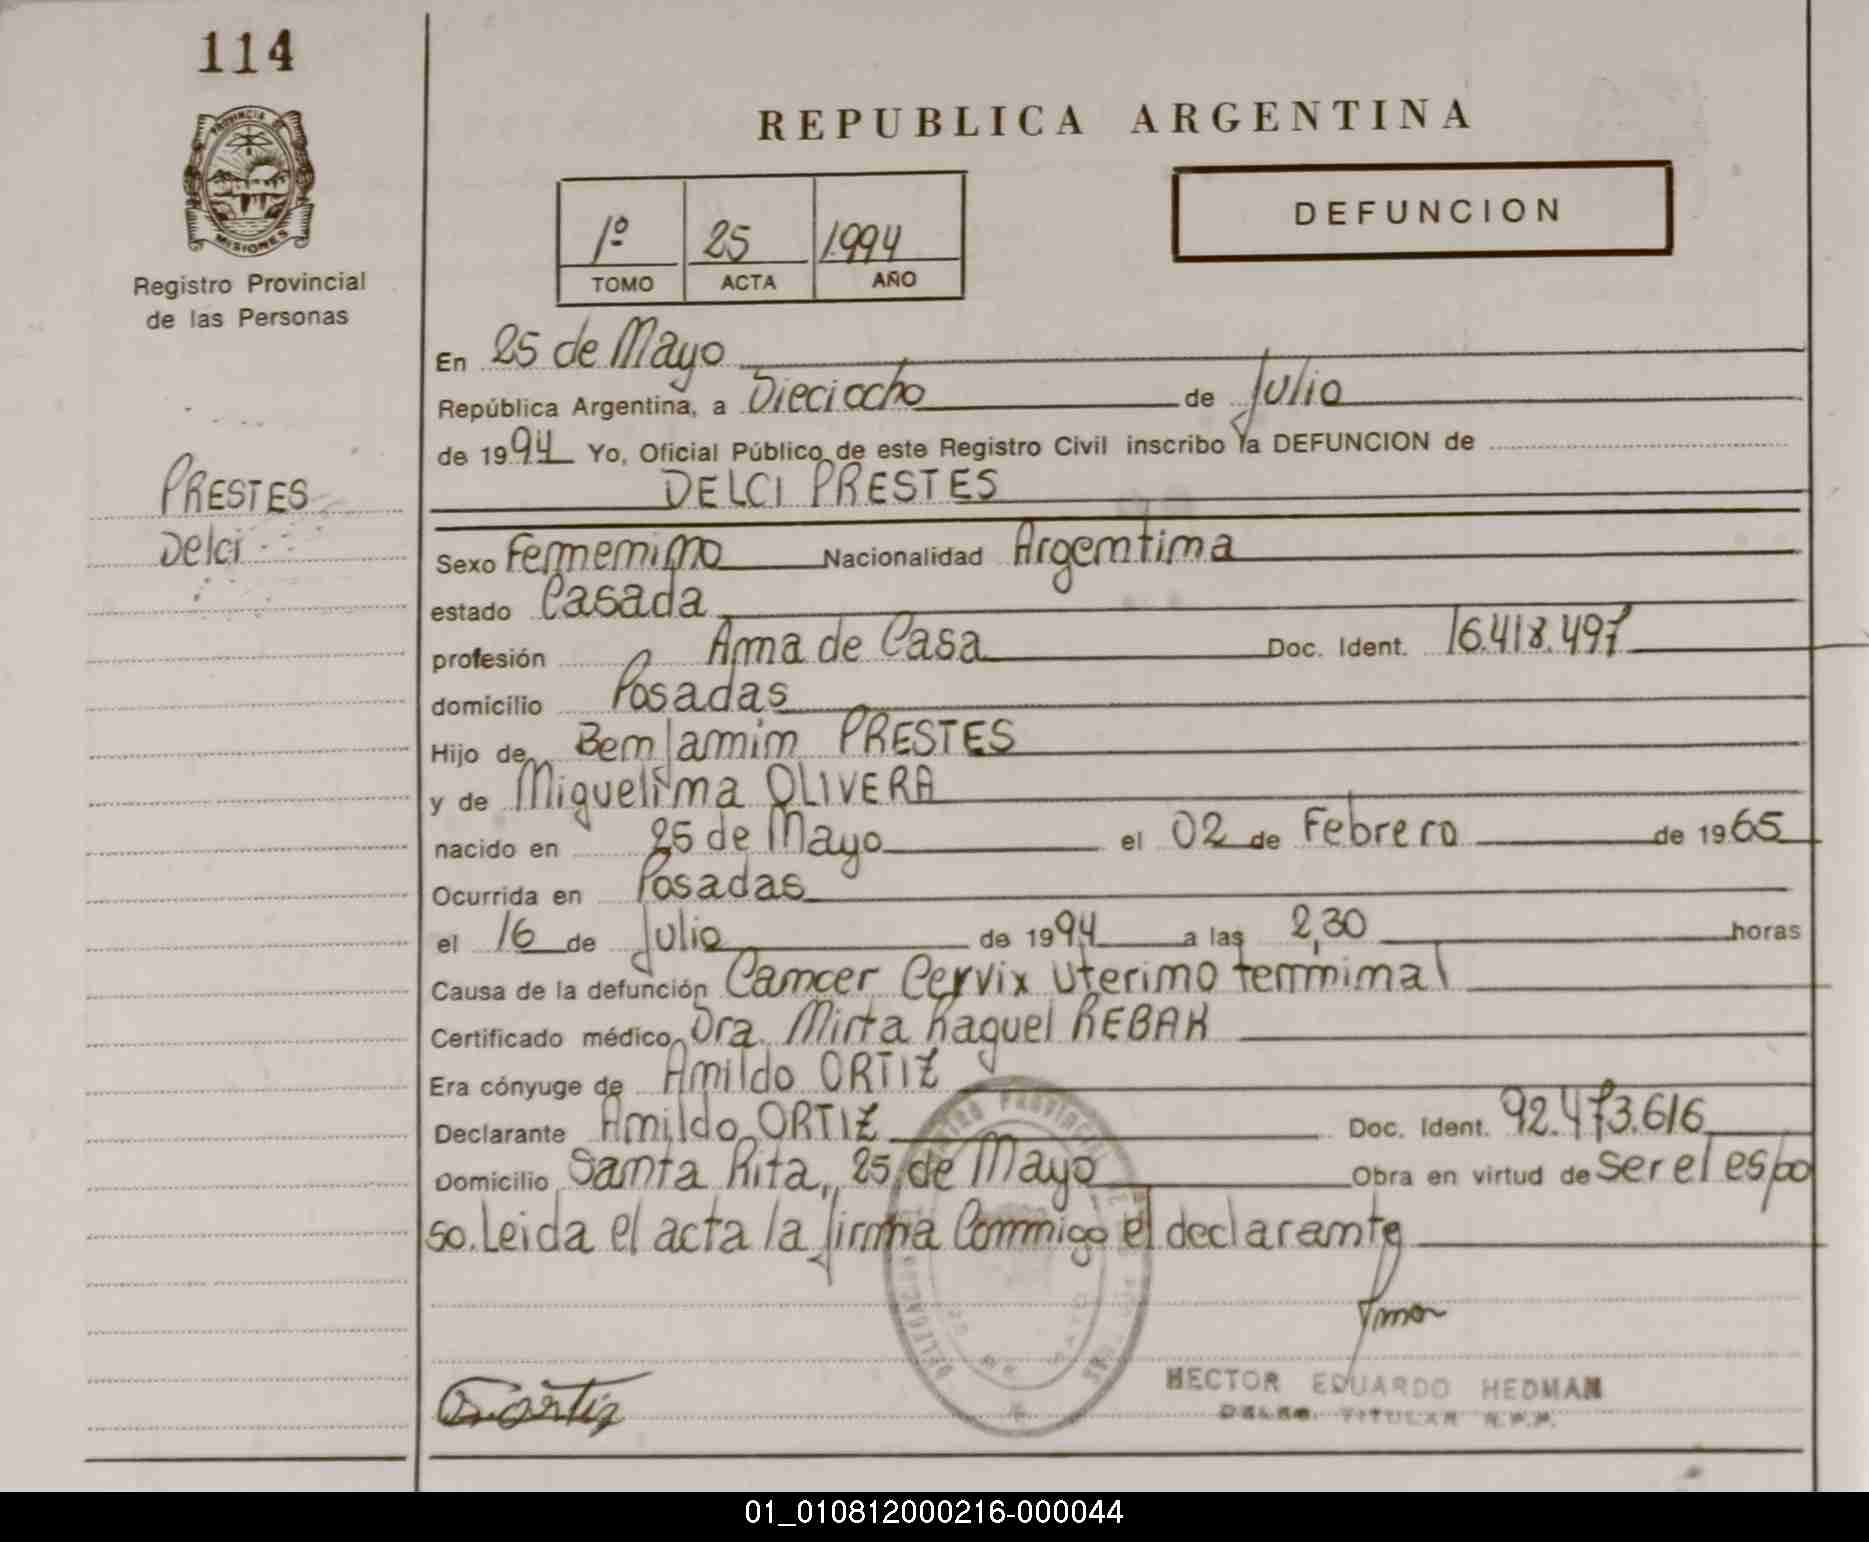 114
PROVINCIA DE
MISIONES
Registro Provincial
de las Personas
REPUBLICA ARGENTINA
1º 25 1994
TOMO ACTA AÑO
DEFUNCION
En 25 de Mayo
República Argentina, a Dieciocho de Julio
de 1994 Yo, Oficial Público de este Registro Civil inscribo la DEFUNCION de
DELCI PRESTES
PRESTES
Delci
Sexo Femenino Nacionalidad Argentina
estado Casada
profesión Ama de Casa Doc. Ident. 16.418.497
domicilio Posadas
Hijo de Benjamin PRESTES
y de Miguelina OLIVERA
nacido en 25 de Mayo el 02 de Febrero de 1965
Ocurrida en Posadas
el 16 de Julio de 1994 a las 2,30 horas
Causa de la defunción Cancer Cervix uterino terminal
Certificado médico Dra. Mirta Raquel REBAK
Era cónyuge de Anildo ORTIZ
Declarante Anildo ORTIZ Doc. Ident. 92.473.616
Domicilio Santa Rita, 25 de Mayo Obra en virtud de ser el espo
so. Leida el acta la firma conmigo el declarante
HECTOR EDUARDO HEDMAN
DELEG. TITULAR R.P.P.
01_010812000216-000044